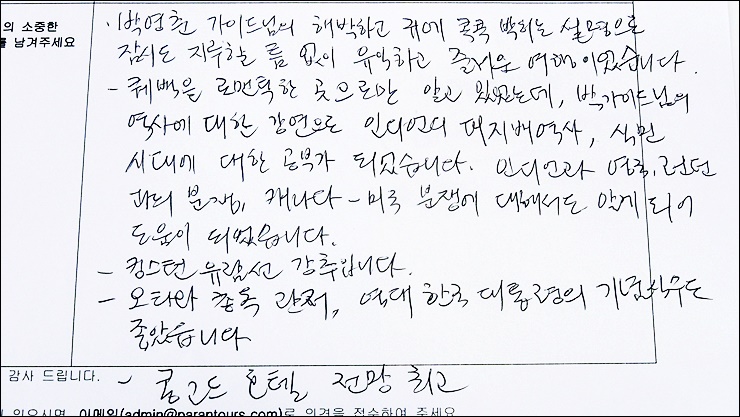 의 소중한
를 남겨주세요
· 박영헌 가이드님의 해박하고 귀에 콕콕 박히는 설명으로
잠시도 지루할 틈 없이 유익하고 즐거운 여행이었습니다.
- 퀘백은 로맨틱한 곳으로만 알고 있었는데, 박가이드님의
역사에 대한 강연으로 인디언의 피지배역사, 식민
시대에 대한 공부가 되었습니다. 인디언과 영국,
과의 분쟁, 캐나다 - 미국 분쟁에 대해서도 알게 되어
도움이 되었습니다.
- 킹스턴 유람선 강추입니다.
- 오타와 총독 관저, 역대 한국 대통령의 기념식수도
좋았습니다
감사 드립니다.
- 콩고드 호텔 전망 최고
이 있으시면, 이메일(admin@parantours.com)로 의견을 접수하여 주세요